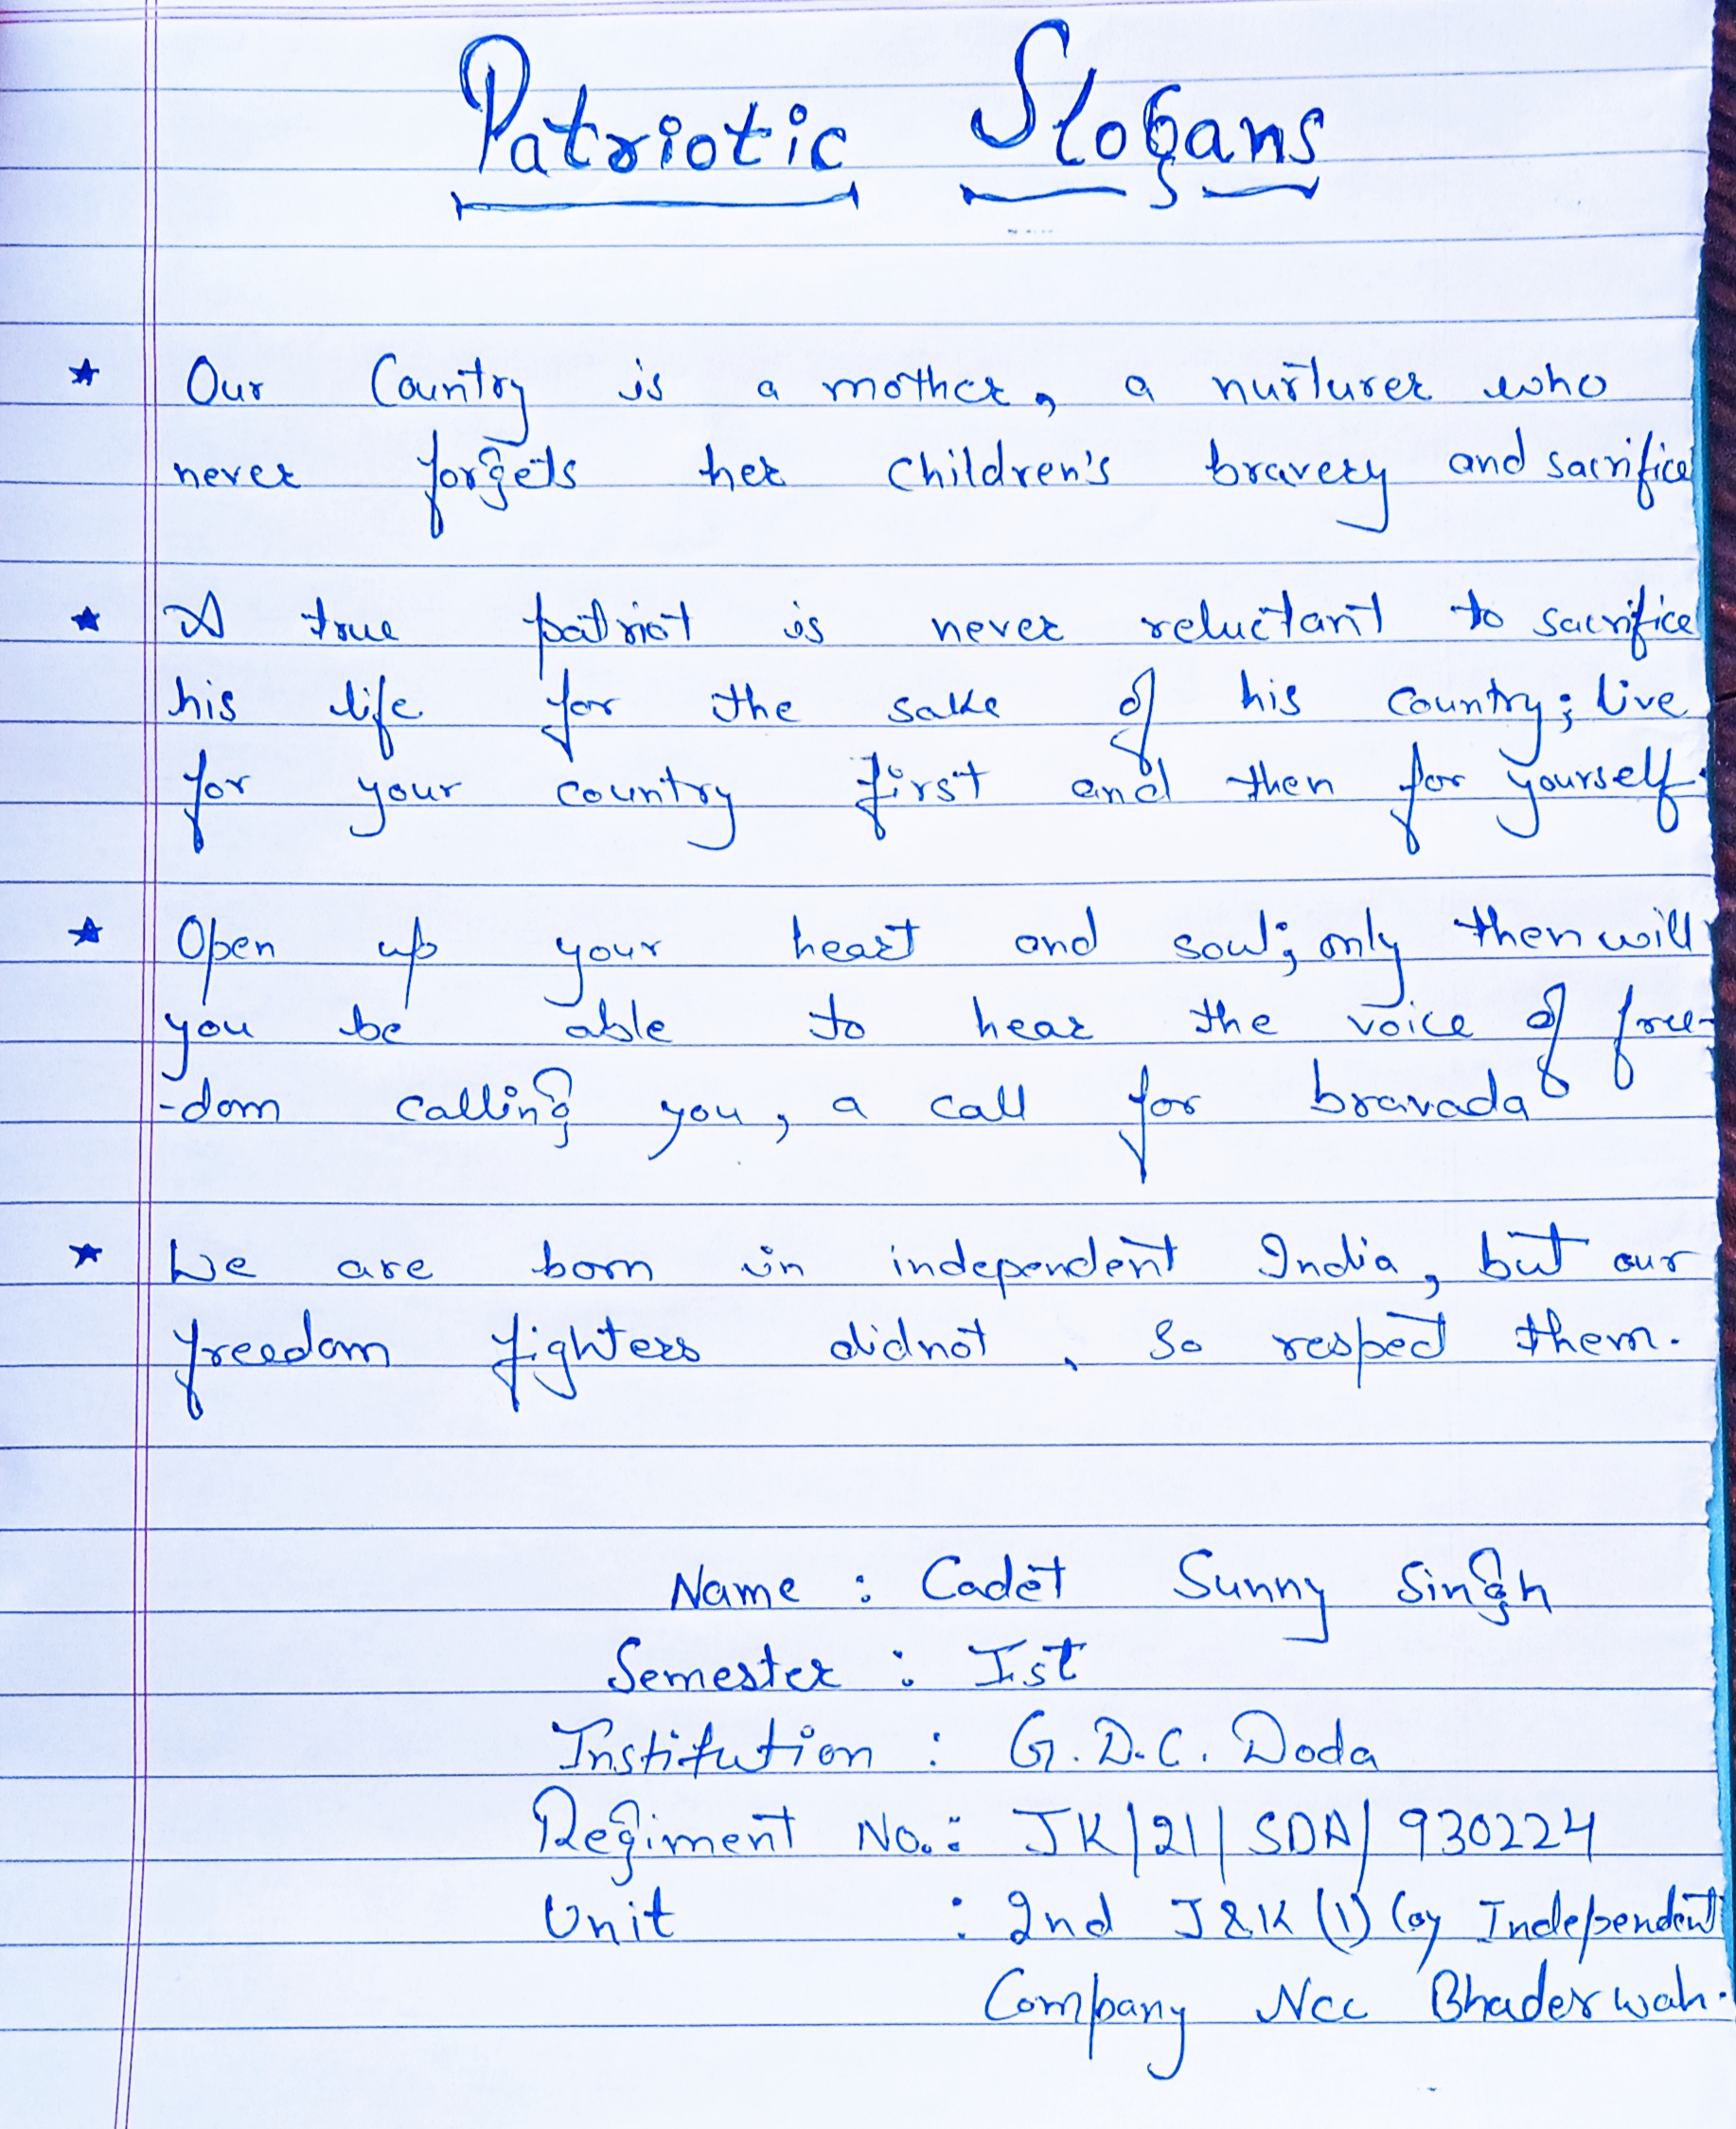 Patriotic Slogans
★ Our Country is a mother, a nurturer who
never forgets her children's bravery and sacrifice
★ A true patriot is never reluctant to sacrifice
his life for the sake of his country; live
for your country first and then for yourself.
★ Open up your heart and soul; only then will
you be able to hear the voice of free-
-dom calling you, a call for bravada
★ We are born in independent India, but our
freedom fighters didnot, So respect them.
Name : Cadet Sunny Singh
Semester : Ist
Institution : G.D.C. Doda
Regiment No.: JK/21/SDA/930224
Unit : 2nd J&K (1) Coy Independent
Company Ncc Bhaderwah.